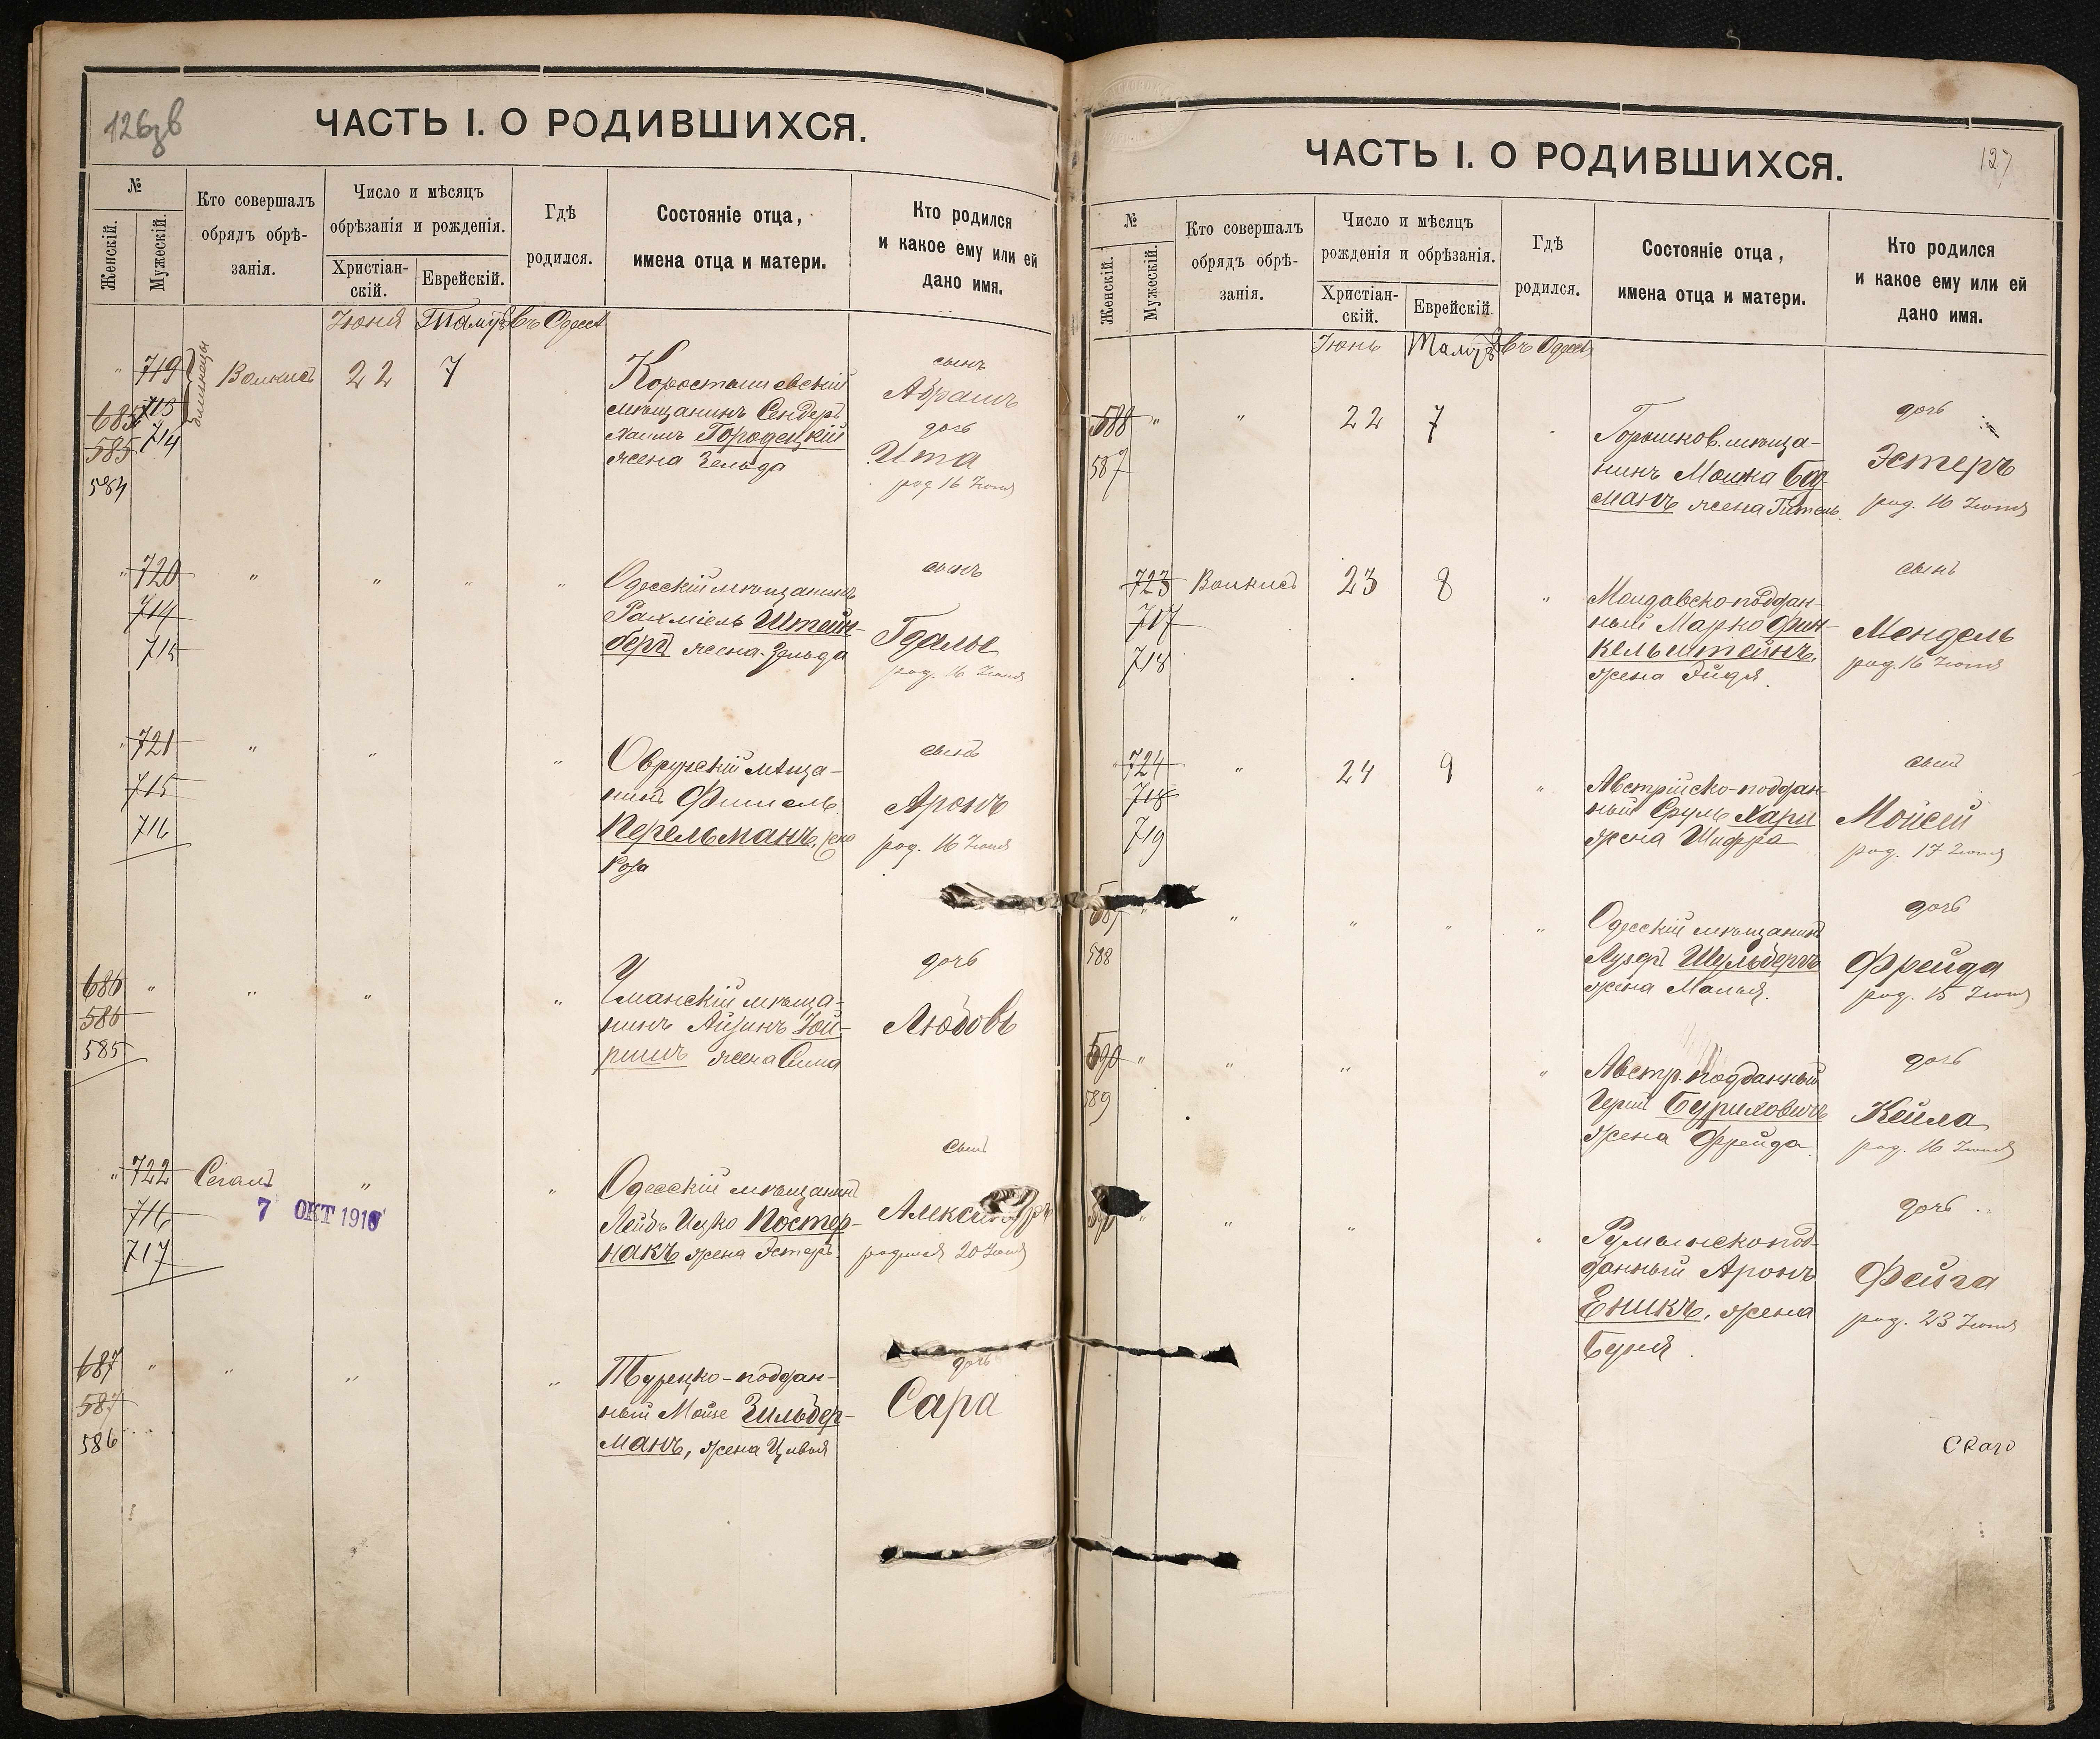 126зв
ЧАСТЬ I. О РОДИВШИХСЯ.
№
Женскій.
Мужескій.
Кто совершалъ
обрядъ обрѣ-
занія.
Число и мѣсяцъ
обрѣзанія и рожденія.
Христіан-
скій.
Еврейскій.
Гдѣ
родился.
Состояніе отца,
имена отца и матери.
Кто родился
и какое ему или ей
дано имя.
Іюня Тамуз въ Одессѣ
" 719 близнецы
22 7
685 713
585 714
584
Коростышевскій
мѣщанинъ Сендеръ
Хаимъ Городецкій
жена Зельда
сынъ
Абрамъ
дочь
Ита
род 16 Іюня
" 720 " " " "
714
715
Одесскій мѣщанинъ
Рахміель Штейн-
бергъ жена Зельда
сынъ
Гдалье
род. 16 Іюня
" 721 " " "
715
716
Овручскій мѣща-
нинъ Фишель
Перельманъ, жена
Роза
сынъ
Аронъ
род. 16 Іюня
686 " " " "
586
585
Уманскій мѣща-
нинъ Айзикъ Зой-
ришъ жена Сима
дочь
Любовь
" 722 Сегалъ " "
716
717
7 ОКТ 1916
Одесскій мѣщанинъ
Лейбъ Ицко Постер-
накъ жена Эстеръ
сынъ
Александръ
родился 20 Іюня
687 " " " "
587
586
Турецко-поддан-
ный Мойше Зильбер-
манъ, жена Цивья
дочь
Сара
127
ЧАСТЬ I. О РОДИВШИХСЯ.
№
Женскій.
Мужескій.
Кто совершалъ
обрядъ обрѣ-
занія.
Число и мѣсяцъ
рожденія и обрѣзанія.
Христіан-
скій.
Еврейскій.
Гдѣ
родился.
Состояніе отца,
имена отца и матери.
Кто родился
и какое ему или ей
дано имя.
Іюнь Тамузъ въ Одессѣ
588 " " 22 7
587
мѣща-
нинъ Мошка
манъ жена
дочь
Эстеръ
род. 16 Іюня
723 23 8 "
717
718
Молдавско-поддан-
ный Марко Фин-
кельштейнъ,
жена Эйдя.
сынъ
Мендель
род. 16 Іюня
724 " 24 9 "
718
719
Австрійско-поддан-
ный Сруль Хари
жена Шифра
сынъ
Мойсей
род. 17 Іюня
" " " " "
588
Одесскій мѣщанинъ
Лузеръ Шульбергъ
жена Малья.
дочь
Фрейда
род. 15 Іюня
590 " " " "
589
Австр. подданный
Герш Буриховичъ
жена Фрейда.
дочь
Кейла
род. 16 Іюня
590 " " " "
Румынскопод-
данный Аронъ
Еникъ, жена
Буня.
дочь
Фейга
род. 23 Іюня